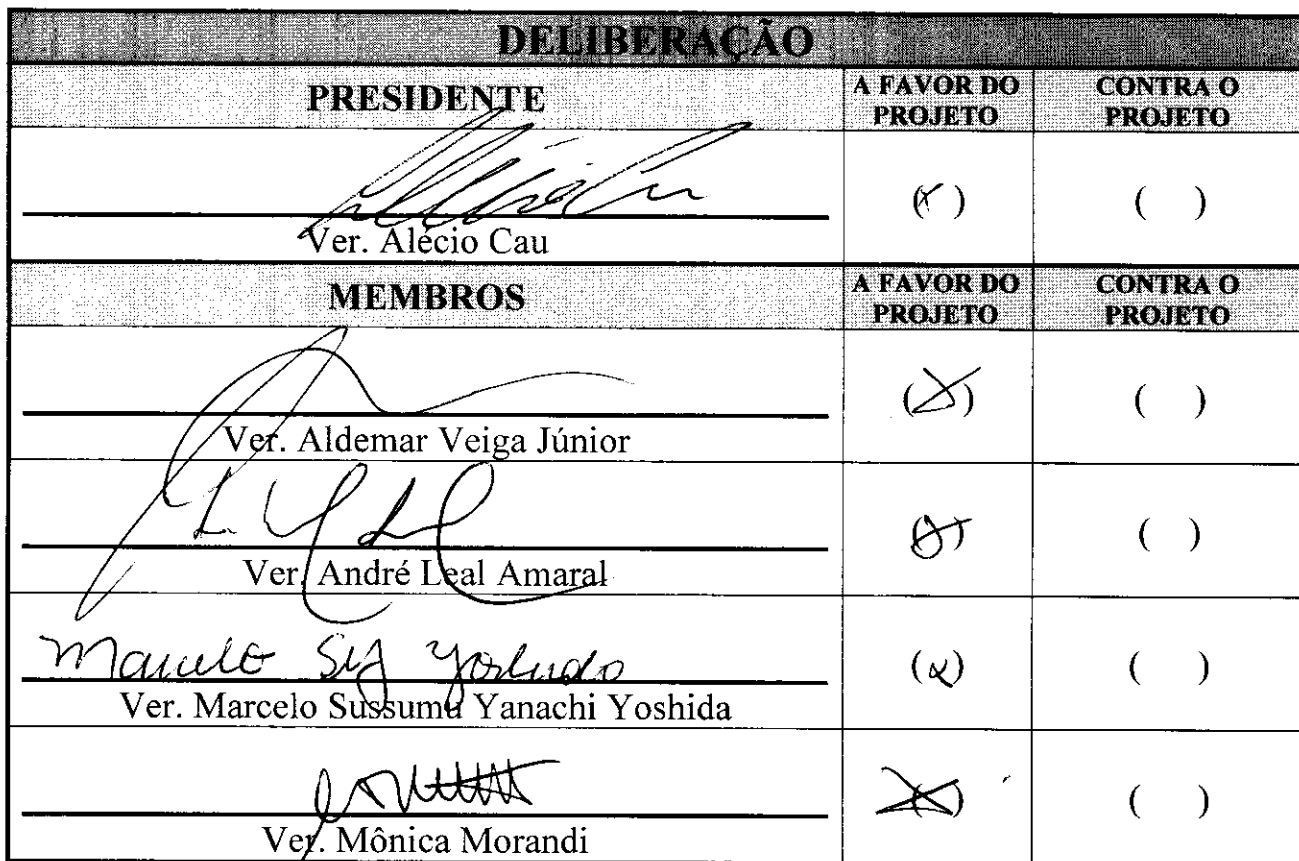 DELIBERAÇÃO
PRESIDENTE A FAVOR DO PROJETO CONTRA O PROJETO
(x) ( )
Ver. Alécio Cau
MEMBROS A FAVOR DO PROJETO CONTRA O PROJETO
(x) ( )
Ver. Aldemar Veiga Júnior
(x) ( )
Ver. André Leal Amaral
Marcelo
(x) ( )
Ver. Marcelo Sussumu Yanachi Yoshida
(x) ( )
Ver. Mônica Morandi